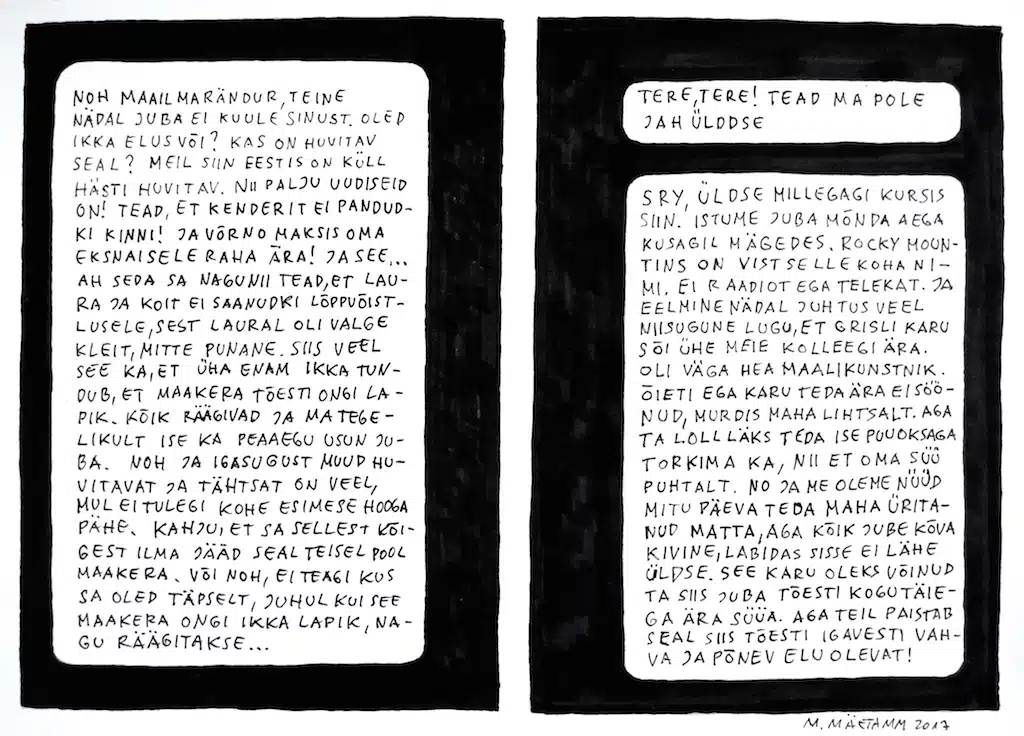 NOH MAAILMARÄNDUR, TEINE
NÄDAL JUBA EI KUULE SINUST. OLED
IKKA ELUS VÕI? KAS ON HUVITAV
SEAL? MEIL SIIN EESTIS ON KÜLL
HÄSTI HUVITAV. NII PALJU UUDISEID
ON! TEAD, ET KENDERIT EI PANDUD-
KI KINNI! JA VÕRNO MAKSIS OMA
EKSNAISELE RAHA ÄRA! JA SEE...
AH SEDA SA NAGUNII TEAD, ET LAU-
RA JA KOIT EI SAANUDKI LÕPPVÕIST-
LUSELE, SEST LAURAL OLI VALGE
KLEIT, MITTE PUNANE. SIIS VEEL
SEE KA, ET ÜHA ENAM IKKA TUN-
DUB, ET MAAKERA TÕESTI ONGI LA-
PIK. KÕIK RÄÄGIVAD JA MA TEGE-
LIKULT ISE KA PEAAEGU USUN JU-
BA. NOH JA IGASUGUST MUUD HU-
VITAVAT JA TÄHTSAT ON VEEL,
MUL EI TULEGI KOHE ESIMESE HOOGA
PÄHE. KAHJU, ET SA SELLEST KÕI-
GEST ILMA JÄÄD SEAL TEISEL POOL
MAAKERA. VÕI NOH, EI TEAGI KUS
SA OLED TÄPSELT, JUHUL KUI SEE
MAAKERA ONGI IKKA LAPIK, NA-
GU RÄÄGITAKSE...
TERE, TERE! TEAD MA POLE
JAH ÜLDDSE
SRY, ÜLDSE MILLEGAGI KURSIS
SIIN. ISTUME JUBA MÕNDA AEGA
KUSAGIL MÄGEDES. ROCKY MOUN-
TINS ON VIST SELLE KOHA NI-
MI. EI RAADIOT EGA TELEKAT. JA
EELMINE NÄDAL JUHTUS VEEL
NIISUGUNE LUGU, ET GRISLI KARU
SÕI ÜHE MEIE KOLLEEGI ÄRA.
OLI VÄGA HEA MAALIKUNSTNIK.
ÕIETI EGA KARU TEDA ÄRA EI SÖÖ-
NUD, MURDIS MAHA LIHTSALT. AGA
TA LOLL LÄKS TEDA ISE PUUOKSAGA
TORKIMA KA, NII ET OMA SÜÜ
PUHTALT. NO JA ME OLEME NÜÜD
MITU PÄEVA TEDA MAHA ÜRITA-
NUD MATTA, AGA KÕIK JUBE KÕVA
KIVINE, LABIDAS SISSE EI LÄHE
ÜLDSE. SEE KARU OLEKS VÕINUD
TA SIIS JUBA TÕESTI KOGUTÄIE-
GA ÄRA SÜÜA. AGA TEIL PAISTAB
SEAL SIIS TÕESTI IGAVESTI VAH-
VA JA PÕNEV ELU OLEVAT!
M. MÄETAMM 2017